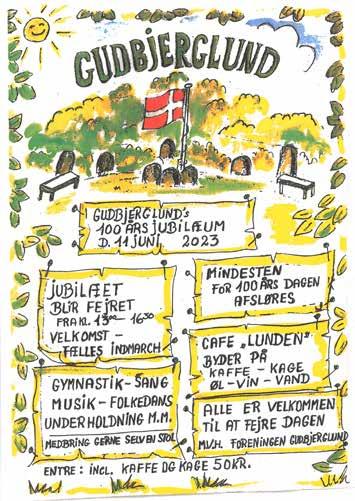 GUDBJERGLUND
GUDBJERGLUND's
100 ÅRS JUBILÆUM
D. 11 JUNI 2023
JUBILÆET
BLIR FEJRET
FRA KL. 13 00 - 16 30
VELKOMST -
FÆLLES INDMARCH
MINDESTEN
FOR 100 ÅRS DAGEN
AFSLØRES
CAFE „LUNDEN"
BYDER PÅ
KAFFE - KAGE
ØL - VIN - VAND
GYMNASTIK - SANG
MUSIK - FOLKEDANS
UNDERHOLDNING M.M.
MEDBRING GERNE SELV EN STOL
ALLE ER VELKOMMEN
TIL AT FEJRE DAGEN
M.V.H. FORENINGEN GUDBJERGLUND
ENTRE: INCL. KAFFE OG KAGE 50 KR.